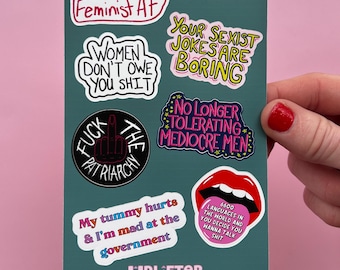 Feminist AF
WOMEN
DON'T OWE
YOU SHIT
YOUR SEXIST
JOKES ARE
BORING
FUCK THE
PATRIARCHY
NO LONGER
TOLERATING
MEDIOCRE MEN
My tummy hurts
& I'm mad at the
government
6600
LANGUAGES IN
THE WORLD AND
YOU DECIDE YOU
WANNA TALK
SHIT